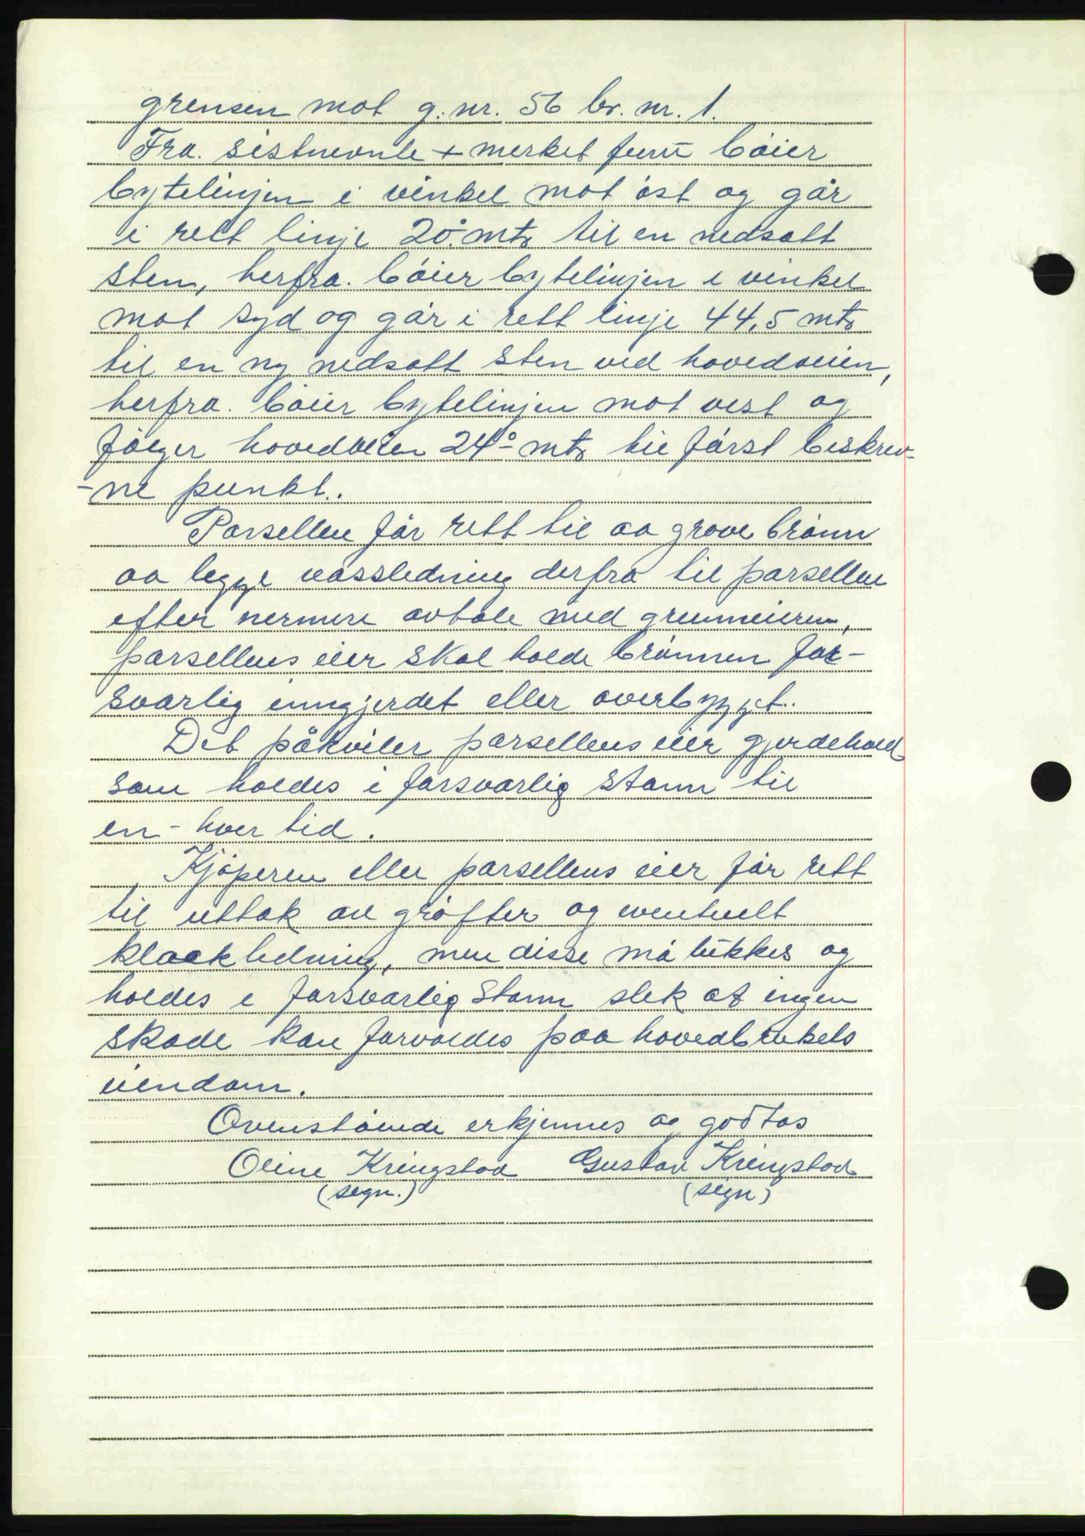 grensen mot g. nr. 56 br. nr. 1.
Fra. sistnevnte + merket furu bøier
bytelinjen i vinkel mot øst og går
i rett linje 20.° mtr til en nedsatt
sten, herfra. bøier bytelinjen i vinkel
mot syd og går i rett linje 44,5 mtr
til en ny nedsatt sten ved hovedveien,
herfra. bøier bytelinjen mot vest og
følger hovedveien 24° mtr til først beskrev-
-ne punkt.
Parsellen får rett til aa grave brønn
aa legge vassledning derfra til parsellen
efter nermere avtale med grunneieren,
parsellens eier skal holde brønnen for-
svarlig inngjerdet eller overbygget.
Det påkviler parsellens eier gjerdehold
som holdes i forsvarlig stann til
en-hver tid.
Kjøperen eller parsellens eier får rett
til uttak av grøfter og eventuelt
kloakkledning, men disse må lukkes og
holdes i forsvarlig stann slik at ingen
skade kan forvoldes paa hovedbrukets
eiendom.
Ovenstående erkjennes og godtas
Oline Kringstad Gustav Kringstad
(sign.) (sign)